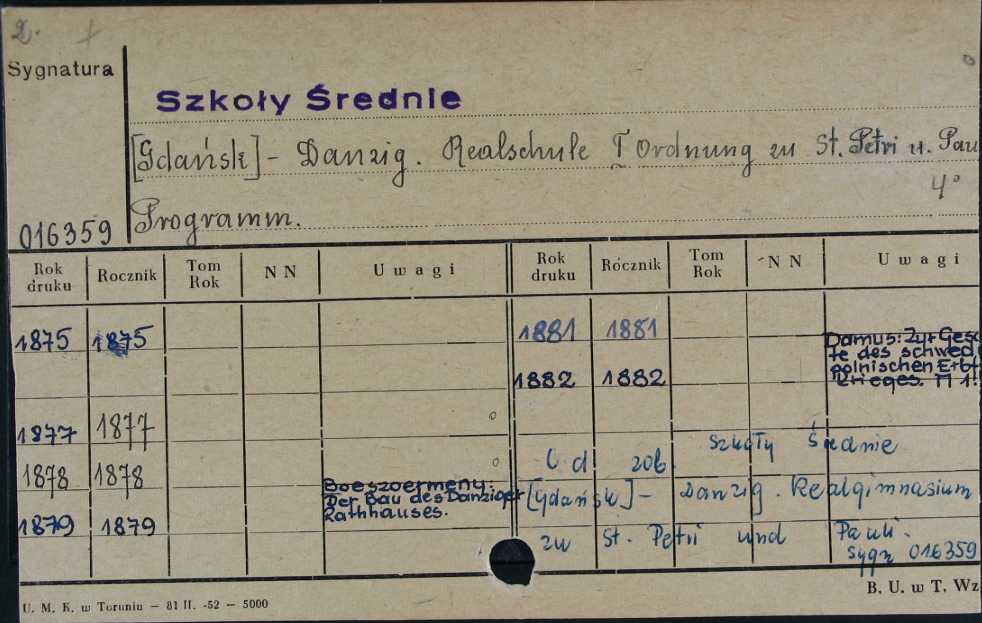 2.
Sygnatura
Szkoły Średnie
[Gdańsk] - Danzig. Realschule I Ordnung zu St. Petri u. Pau
4°
016359
Programm.
Rok druku Rocznik Tom Rok NN Uwagi Rok druku Rocznik Tom Rok NN Uwagi
1875 1875 1881 1881
Damus: Zur Gesc
te des schwed
polnischen Erbf
1882 1882 Krieges.
1877 1877
Szkoły Średnie
1878 1878 C d zob.
Boeszoermeny:
Der Bau des Danziger [Gdańsk] - Danzig. Realgimnasium
Rathhauses.
1879 1879
zu St. Petri und Pauli.
sygn 016359
B. U. w T. Wz
U. M. K. w Toruniu — 81 II. -52 — 5000